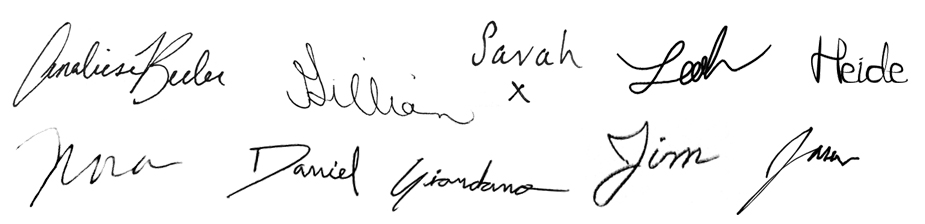 Analiese Beeler Gillian Sarah Leah Heide
x
Nora Daniel Giordano Jim Jason